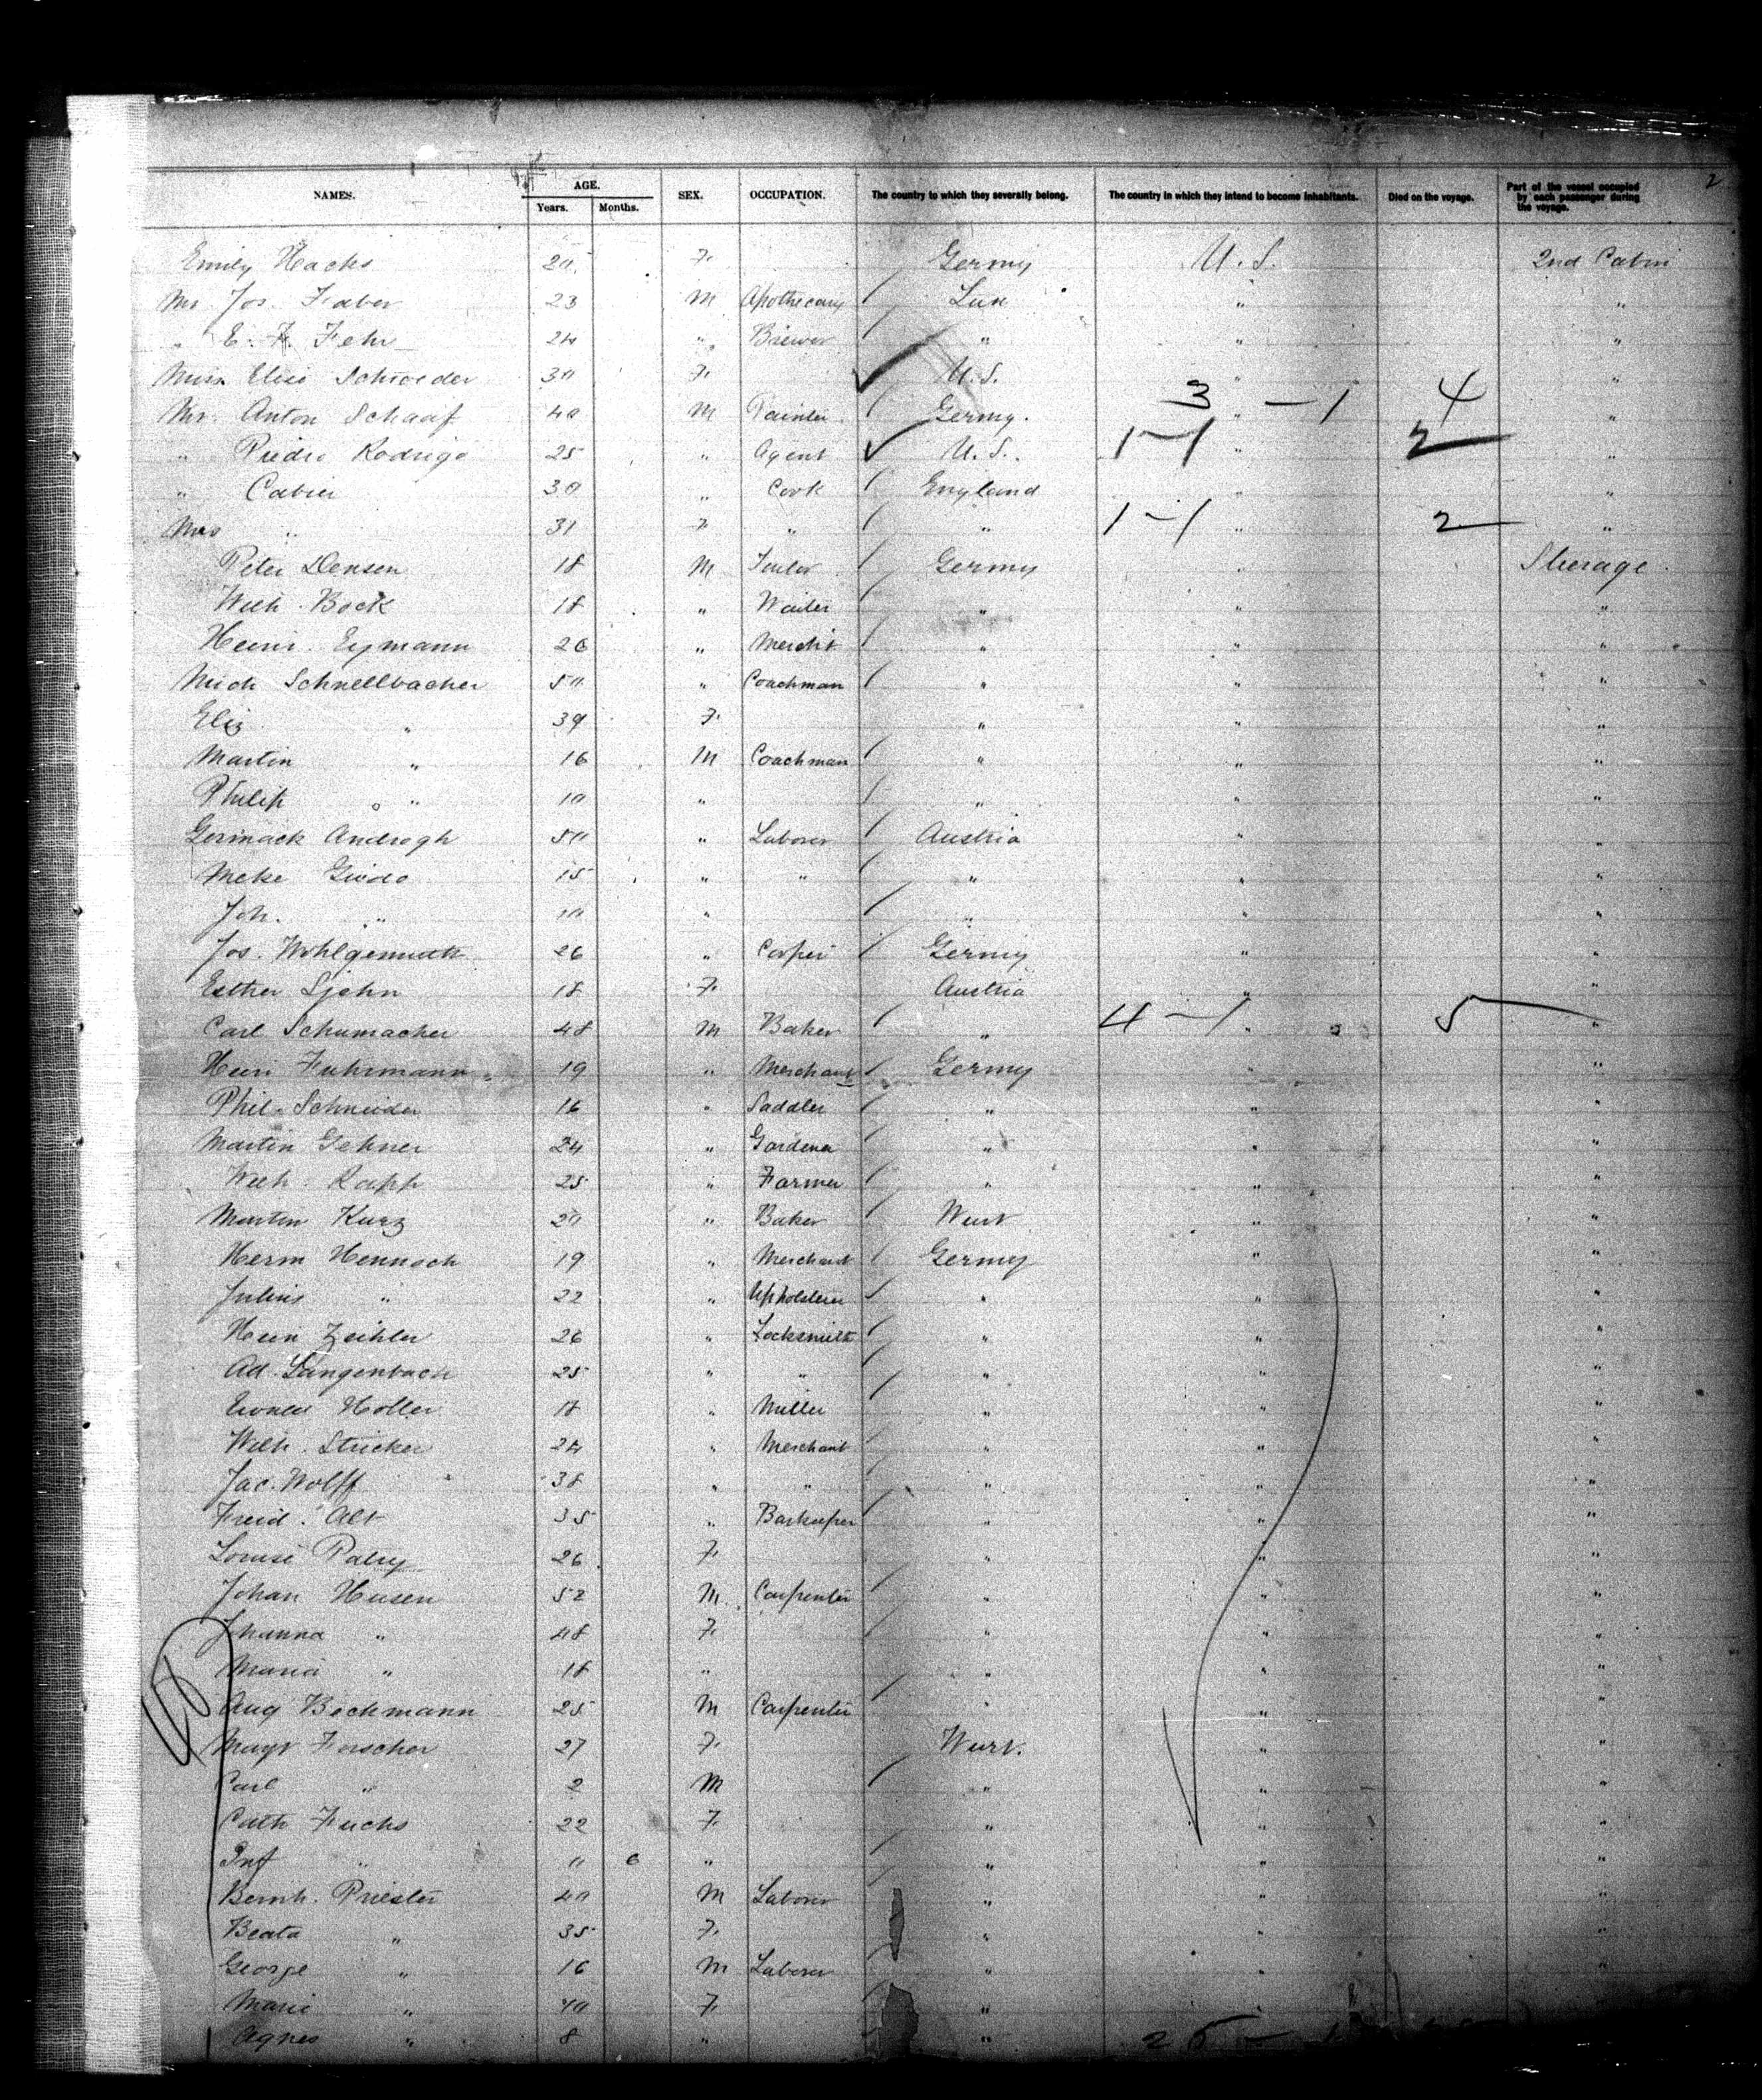 2
NAMES. AGE. SEX. OCCUPATION. The country to which they severally belong. The country in which they intend to become inhabitants. Died on the voyage. Part of the vessel occupied by each passenger during the voyage.
Years. Months.
Emily Hacks 20 F. Germy U.S. 2nd Cabin
Mr. Jos. Faber 23 M Apothecary Lux " "
" E. F. Fehr 24 " Brewer " " "
Miss Elise Schroeder 30 F. U.S. " "
Mr. Anton Schaaf 40 M Painter Germy. 3 " - 1 4 "
" Piedro Rodrigo 25 " Agent U.S. 1-1 " 2 "
" Cabier 30 " Cook England " "
Mrs " 31 F. " " 1-1 " 2 "
Peter Densen 18 M Germy " Steerage
Wilh. Bock 18 " Waiter " " "
Heinr. Eymann 26 " Mercht " " "
Mich Schnellbacher 50 " Coachman " " "
Eliz " 39 F. " " "
Martin " 16 M Coachman " " "
Philip " 10 " " " "
Germack Androgh 50 " Laborer Austria " "
Meke Guido 15 " " " " "
Joh. " 10 " " " "
Jos. Wohlgemuth 26 " Cooper Germy " "
Esther Ljohn 18 F. Austria " "
Carl Schumacher 48 M Baker " 4-1 " 5 "
Heinr Fuhrmann 19 " Merchant Germy " "
Phil. Schneider 16 " Saddler " " "
Martin Gehner 24 " Gardener " " "
Wilh. Rapp 25 " Farmer " " "
Martin Kurz 20 " Baker Wurt " "
Herm Hennoch 19 " Merchant Germy " "
Julius " 22 " Upholsterer " " "
Hein Zeihler 26 " Locksmith " " "
Ad. Langenbach 25 " " " " "
Holler 18 " Miller " " "
Wilh. Stricker 24 " Merchant " " "
Jac. Wolff 38 " " " " "
Fried. Alt 35 " Barkeeper " " "
Louise Patry 26 F. " " "
Johan Husen 52 M Carpenter " " "
Johanna " 48 F. " " "
Maria " 18 " " " "
Aug Beckmann 25 M Carpenter " " "
Magt Forscher 27 F. Wurt. " "
Carl " 2 M " " "
Cath Fuchs 22 F. " " "
Inf " 0 6 " " " "
Bernh. Priester 40 M Laborer " " "
Beata " 35 F. " " "
George " 16 M Laborer " " "
Marie " 10 F. " " "
Agnes " 8 " " 25 - 1